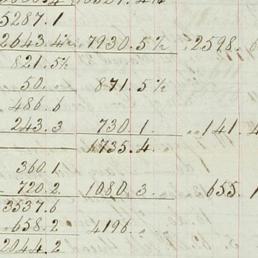 5287.1
2643.4½ 7930.5½ 2598.
821.5½
50. 871.5½
486.6
243.3 730.1. 141.4
1735.4
360.1
720.2 1080.3. 655.1
3537.6
658.2 4196.
2044.2